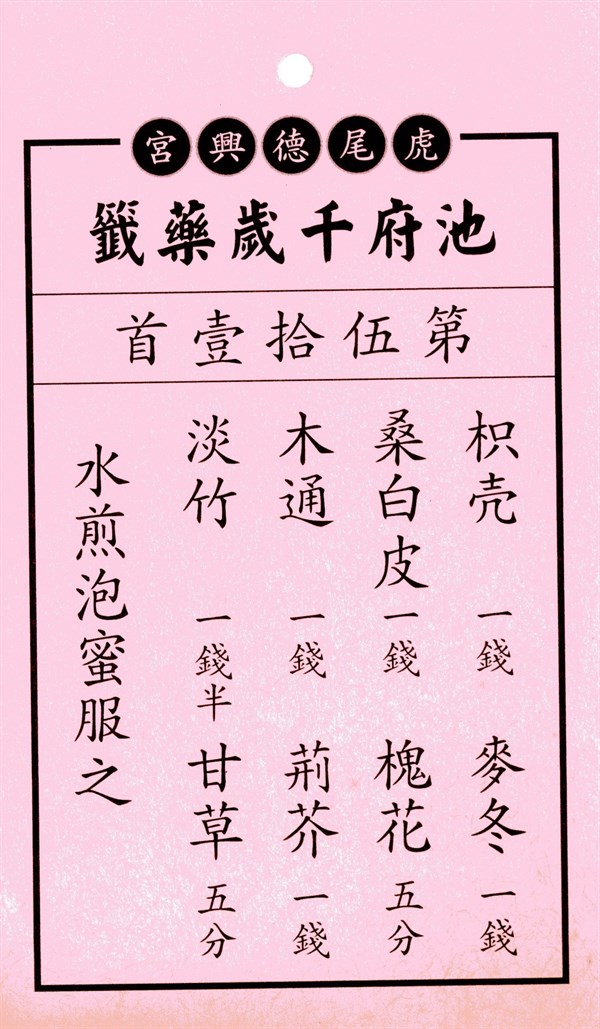 虎尾德興宮
池府千歲藥籤
第伍拾壹首
枳壳 一錢 麥冬 一錢
桑白皮 一錢 槐花 五分
木通 一錢 荊芥 一錢
淡竹 一錢半 甘草 五分
水煎泡蜜服之